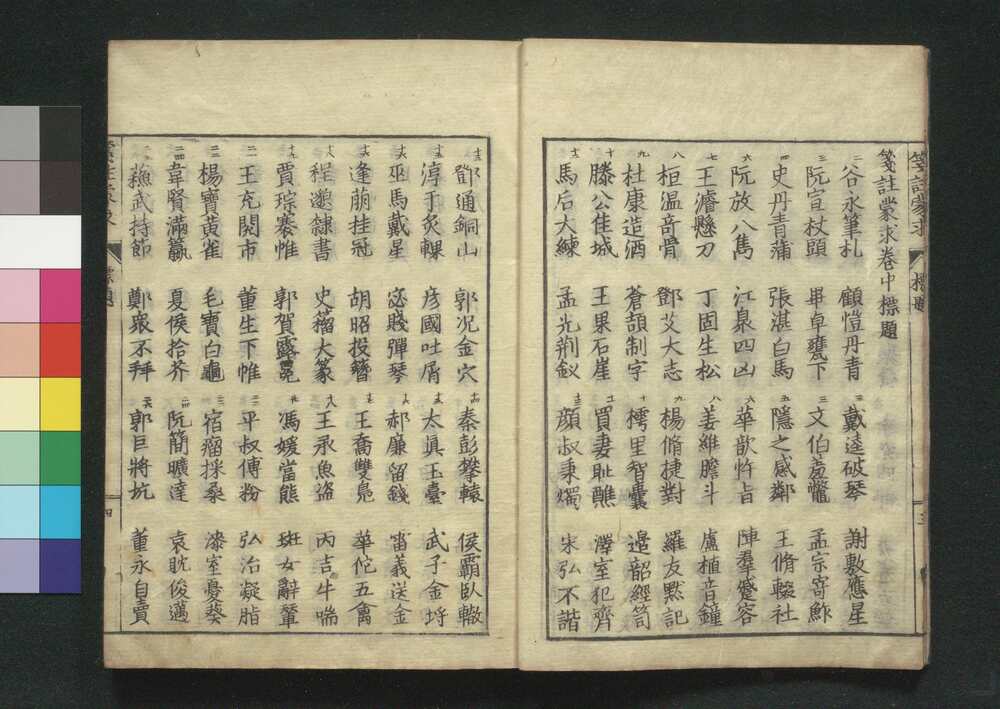 箋註蒙求卷中標題
谷永筆札 顧愷丹青 戴逵破琴 謝敷應星
阮宣杖頭 畢卓甕下 文伯羞鼈 孟宗寄鮓
史丹青蒲 張湛白馬 隱之感鄰 王脩輟社
阮放八雋 江臮四凶 華歆忤旨 陳羣蹙容
王濬懸刀 丁固生松 姜維膽斗 盧植音鐘
桓溫奇骨 鄧艾大志 楊脩捷對 羅友默記
杜康造酒 蒼頡制字 樗里智囊 邊韶經笥
滕公佳城 王果石崖 買妻恥醮 澤室犯齊
馬后大練 孟光荊釵 顏叔秉燭 宋弘不諧
鄧通銅山 郭况金穴 秦彭攀轅 侯霸臥轍
淳于炙輠 彦國吐屑 太眞玉臺 武子金埒
巫馬戴星 宓賤彈琴 郝廉留錢 雷義送金
逢萌挂冠 胡昭投簪 王喬雙鳧 華佗五禽
程邈隸書 史籀大篆 王承魚盜 丙吉牛喘
賈琮褰帷 郭賀露冕 馮媛當熊 班女辭輦
王充閱市 董生下帷 平叔傅粉 弘治凝脂
楊寶黃雀 毛寶白龜 宿瘤採桑 漆室憂葵
韋賢滿籯 夏侯拾芥 阮簡曠達 袁耽俊邁
蘇武持節 鄭衆不拜 郭巨將坑 董永自賣